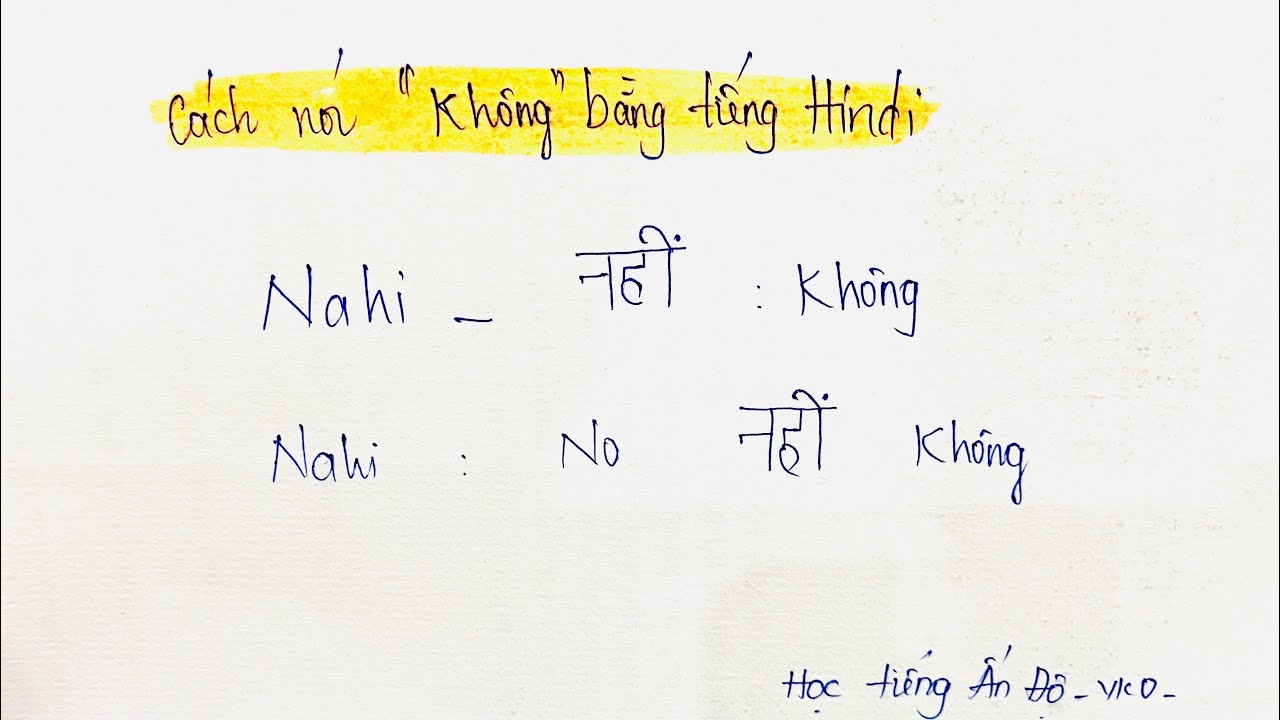 Cách nói "Không" bằng tiếng Hindi
Nahi - नहीं : Không
Nahi : No नहीं Không
Học tiếng Ấn Độ - VKO -